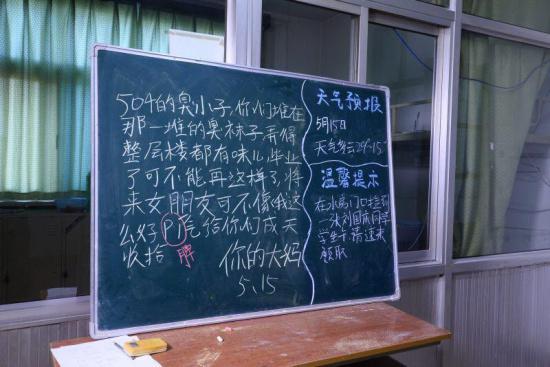 504的臭小子,你们堆在
那一堆的臭袜子弄得
整层楼都有味儿,毕业
了可不能再这样了,将
来女朋友可不像我这
么好Pi气给你们成天
收拾
脾
你的大妈
5、15
天气预报
5月15日
天气多云29~15°
温馨提示
在水房门口捡到
张刘国南同学
学生卡,请速来
领取